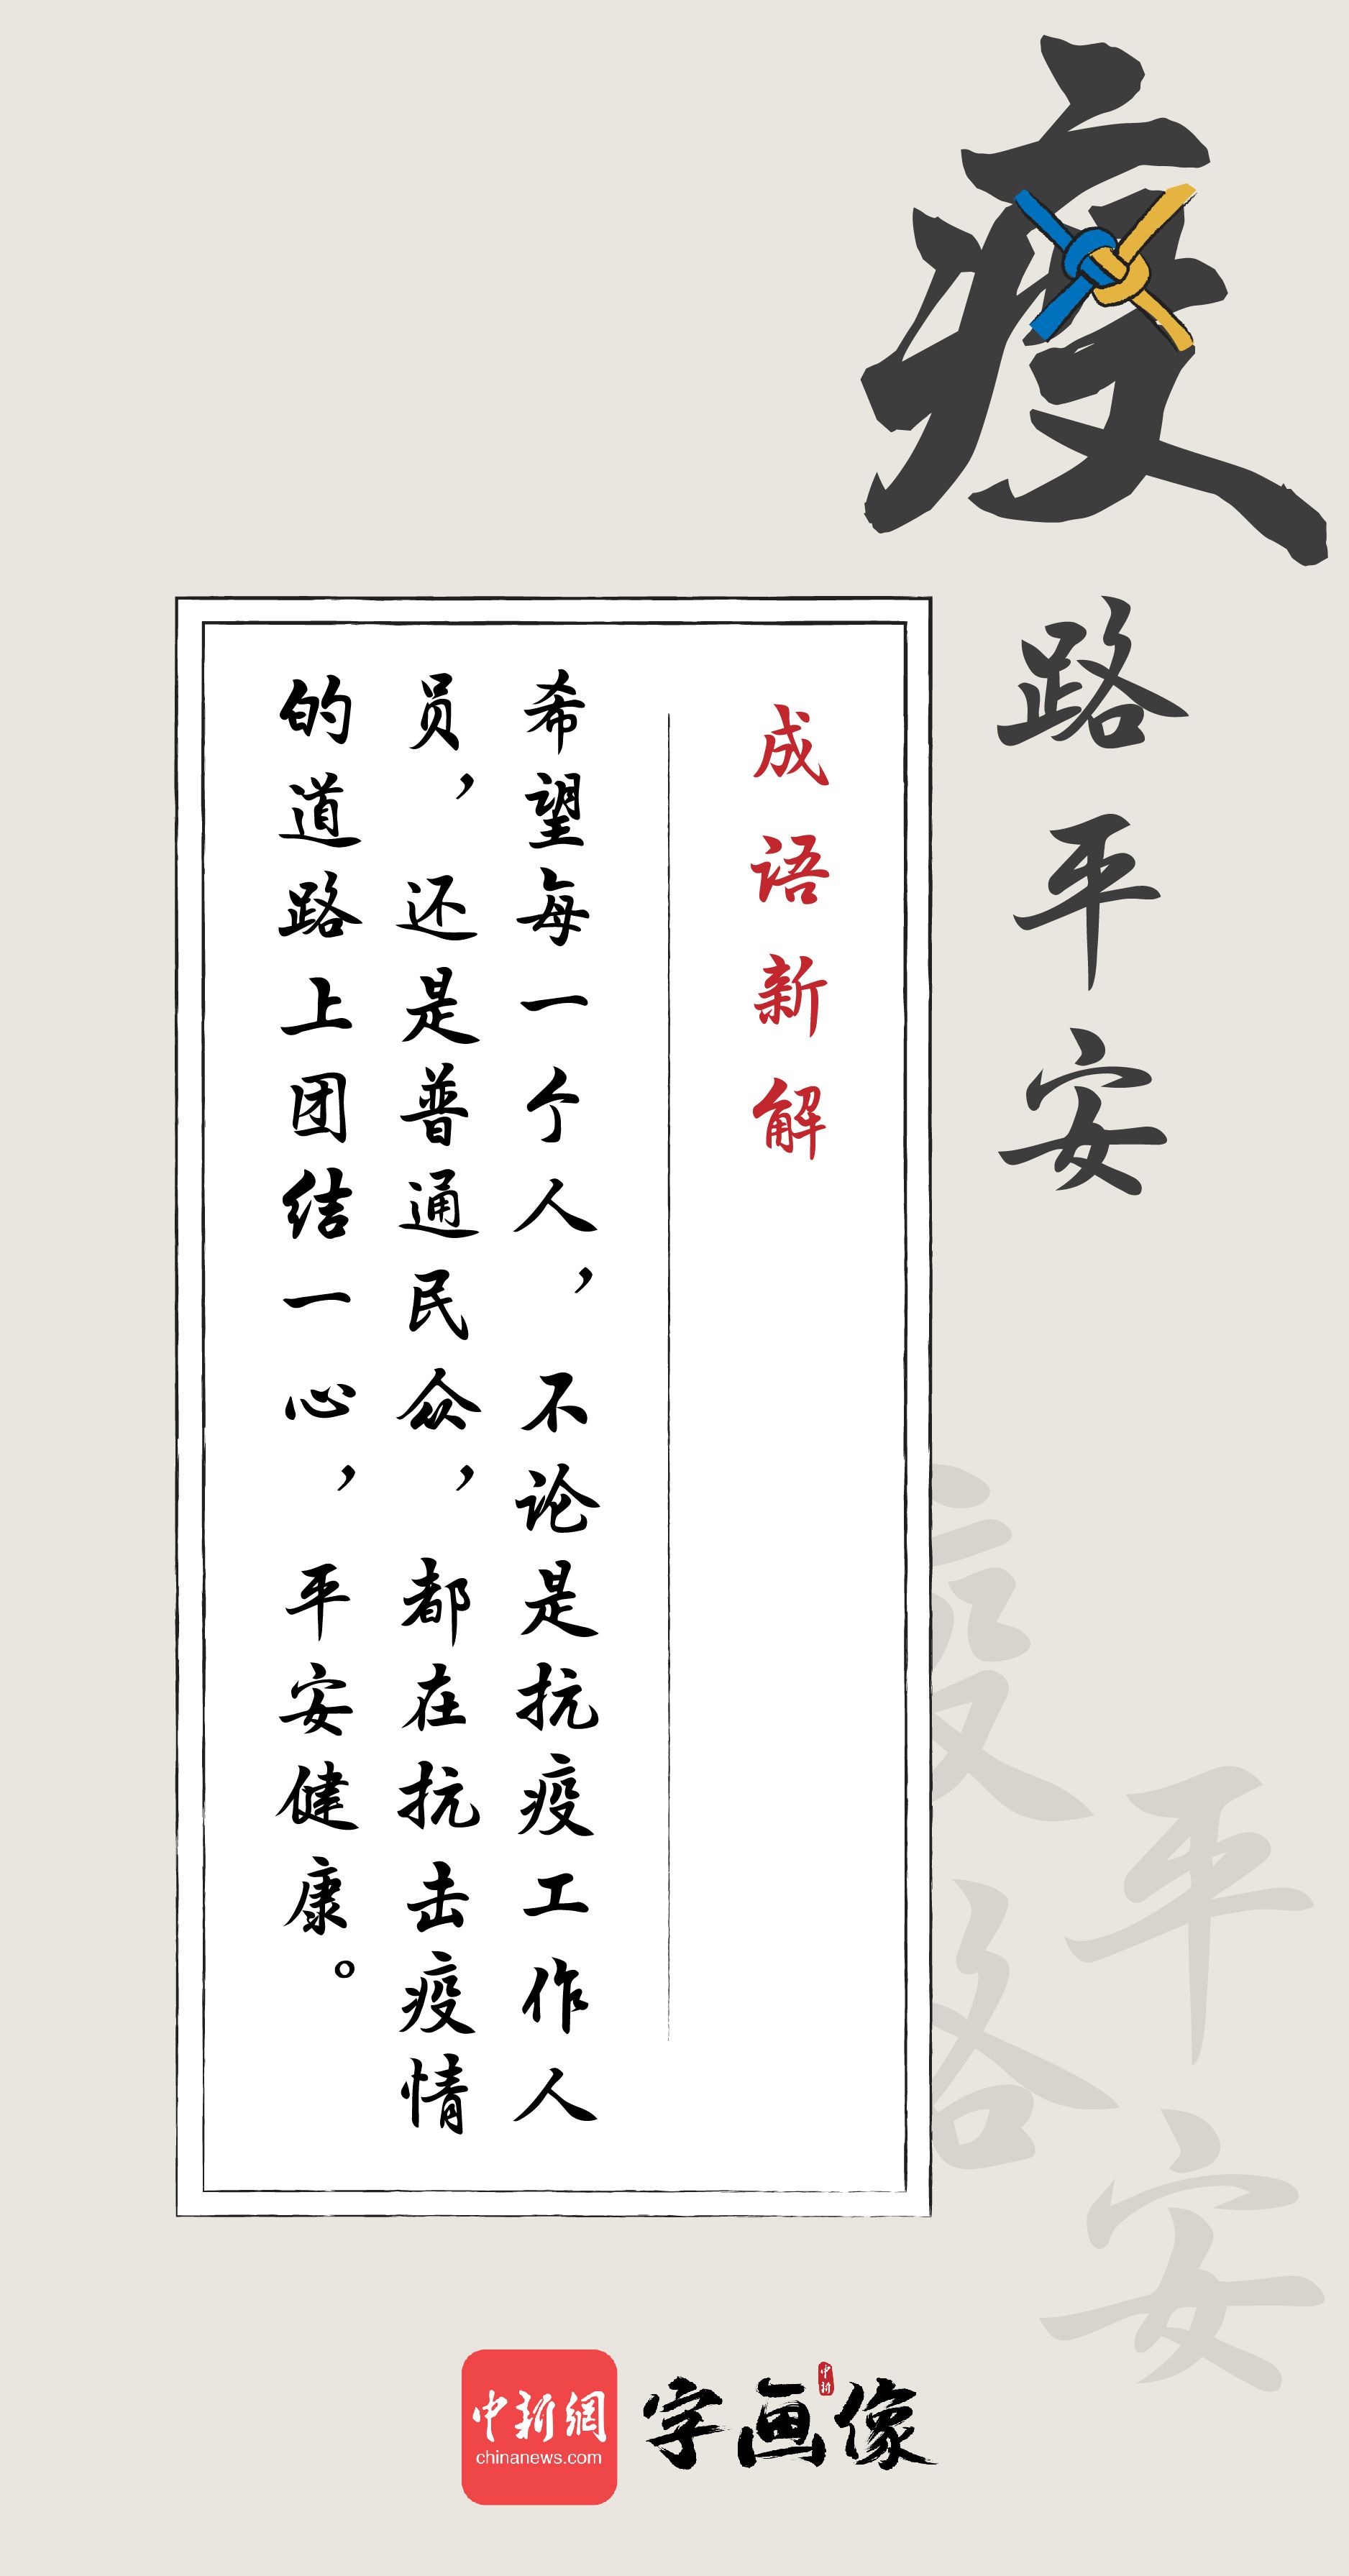 疫路平安
成语新解
希望每一个人，不论是抗疫工作人
员，还是普通民众，都在抗击疫情
的道路上团结一心，平安健康。
疫路
平安
中新網
chinanews.com
字画像
中新